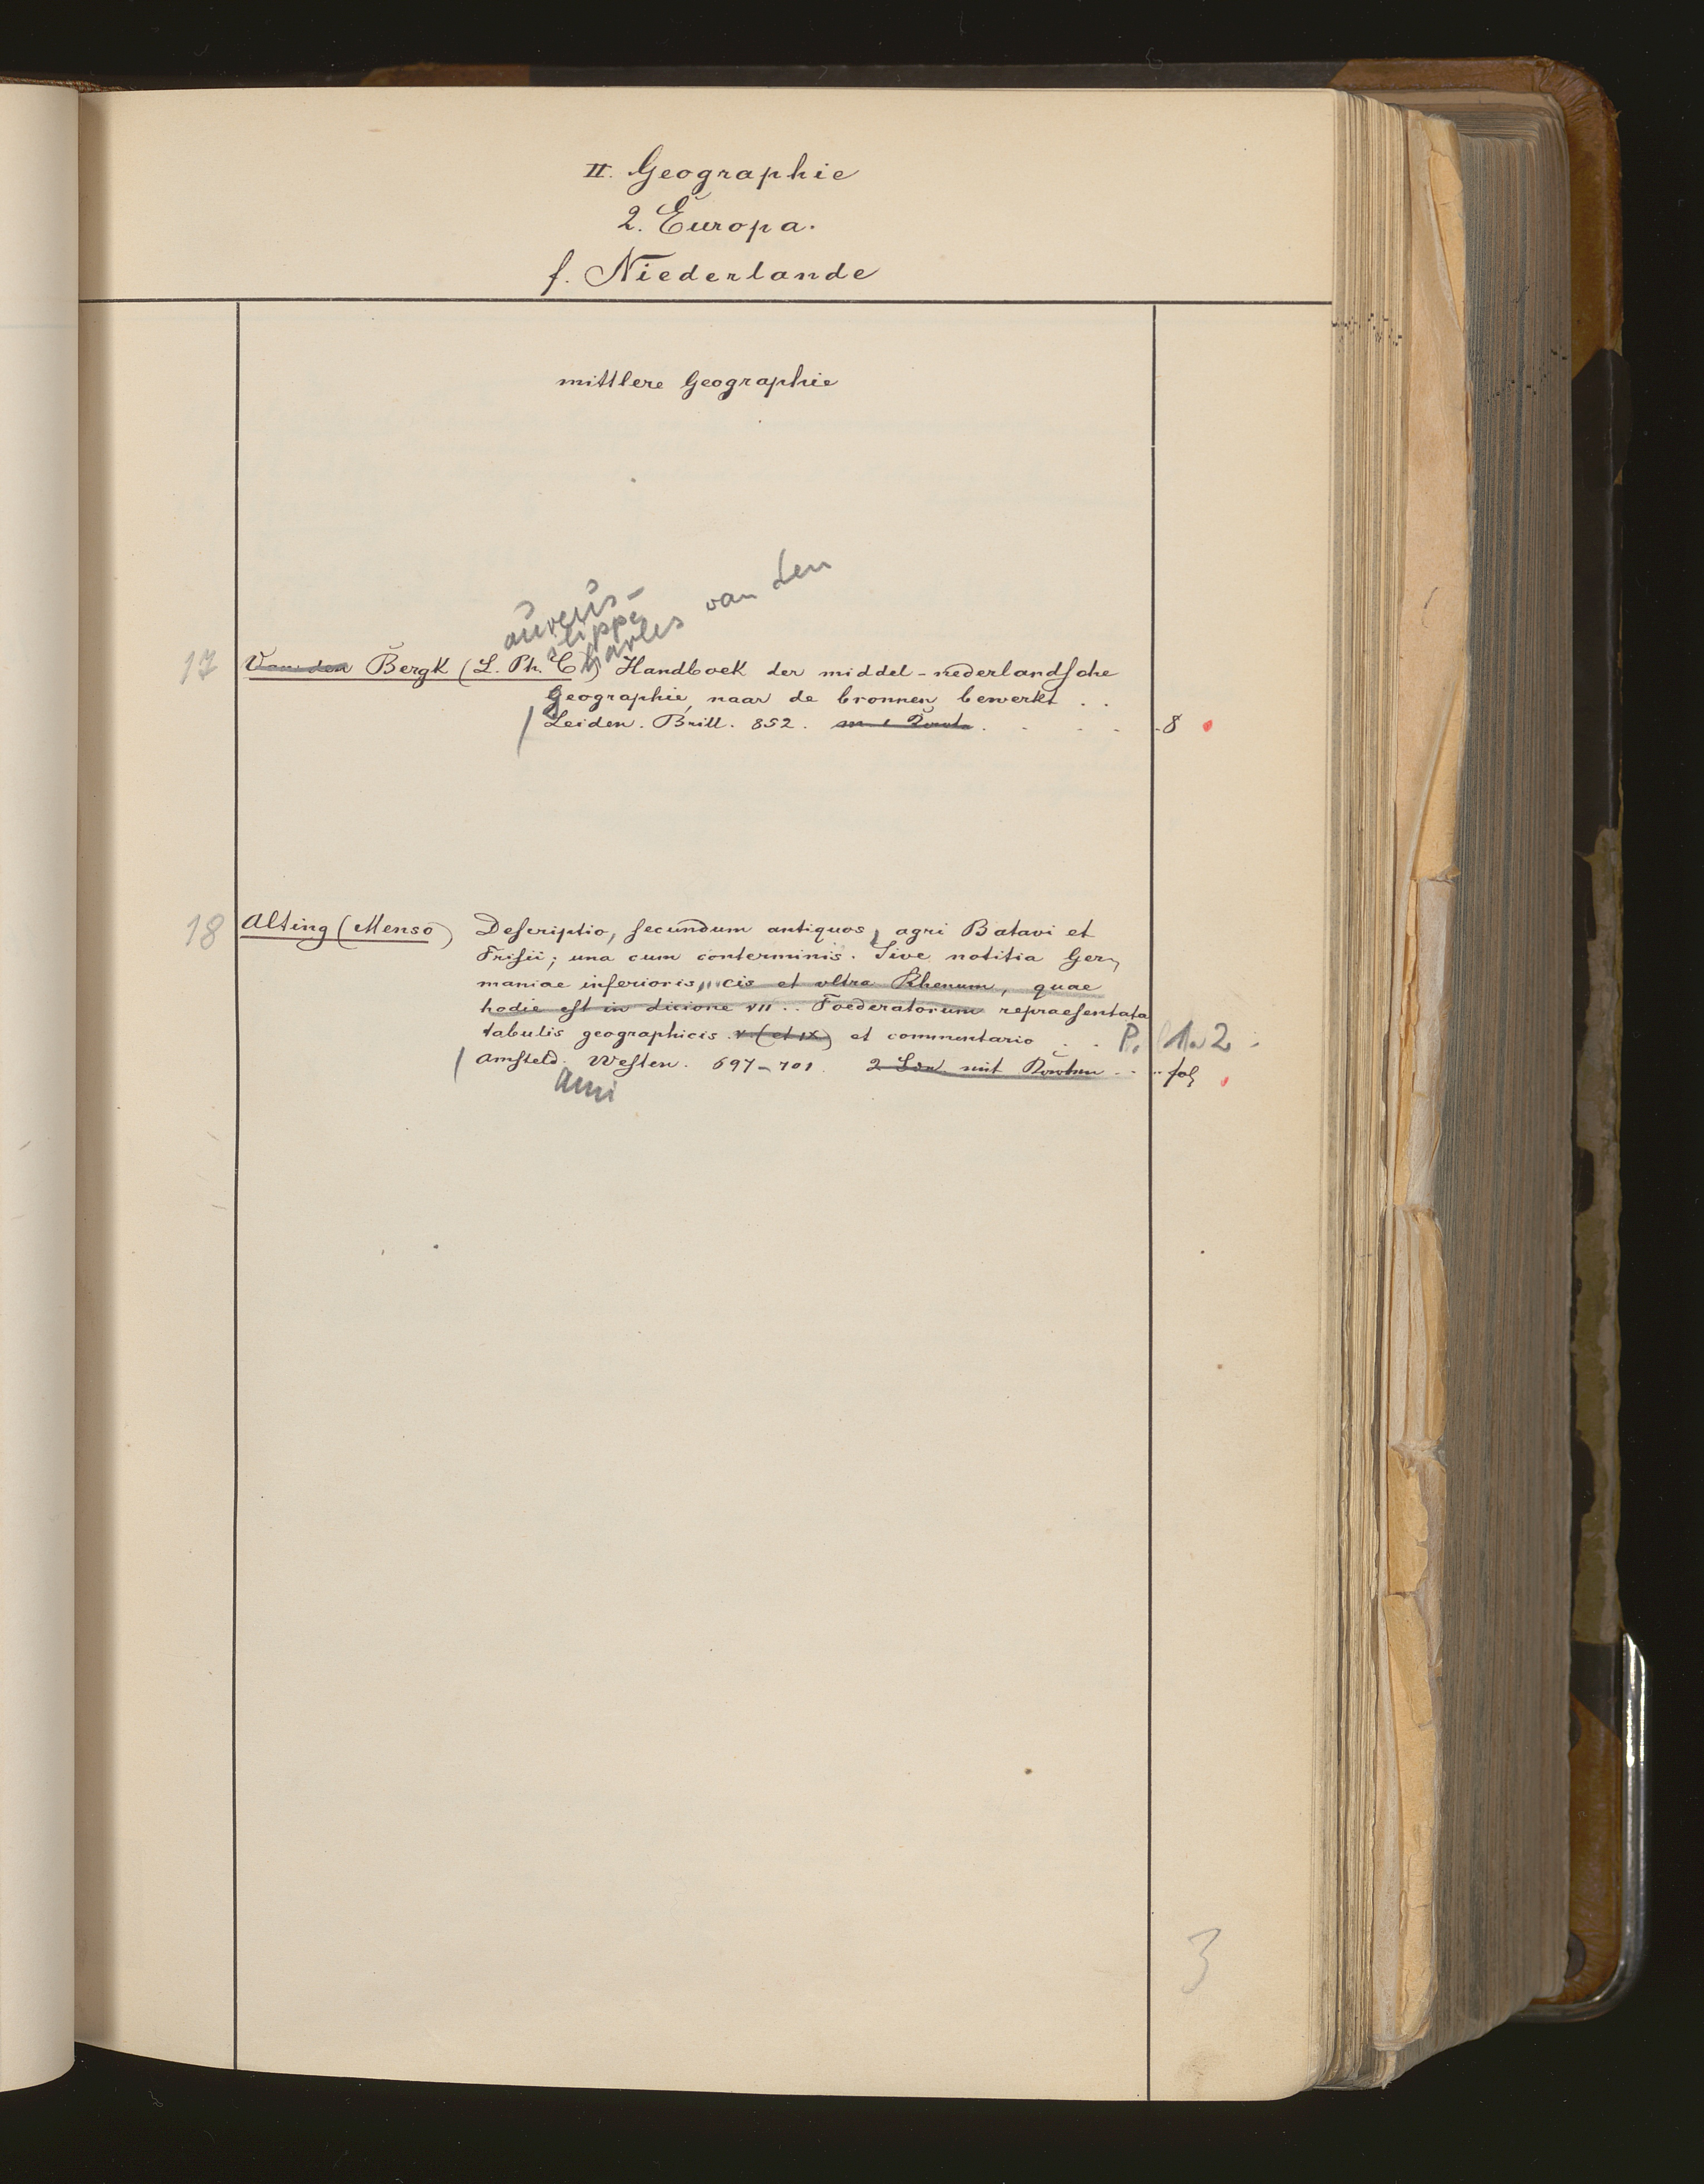 II. Geographie
2. Europa.
f. Niederlande
mittlere Geographie
aurens-
ilippe
harles van den
17 Van den Bergk (L. Ph. C.) Handboek der middel-nederlandsche
Geographie, naar de bronnen bewerkt . .
Leiden. Brill. 852. m 1 . . . . 8
18 Alting (Menso) Descriptio, secundum antiquos, agri Batavi et
Frisii; una cum conterminis. Sive notitia Ger-
maniae inferioris, cis et ultra Rhenum, quae
hodie est in dicione VII . . Foederatorum repraesentata
tabulis geographicis V (et IX) et commentario . . P. 1. 2
Amsteld. Westen. 697-701. 2 mit . . . fol
ami
3